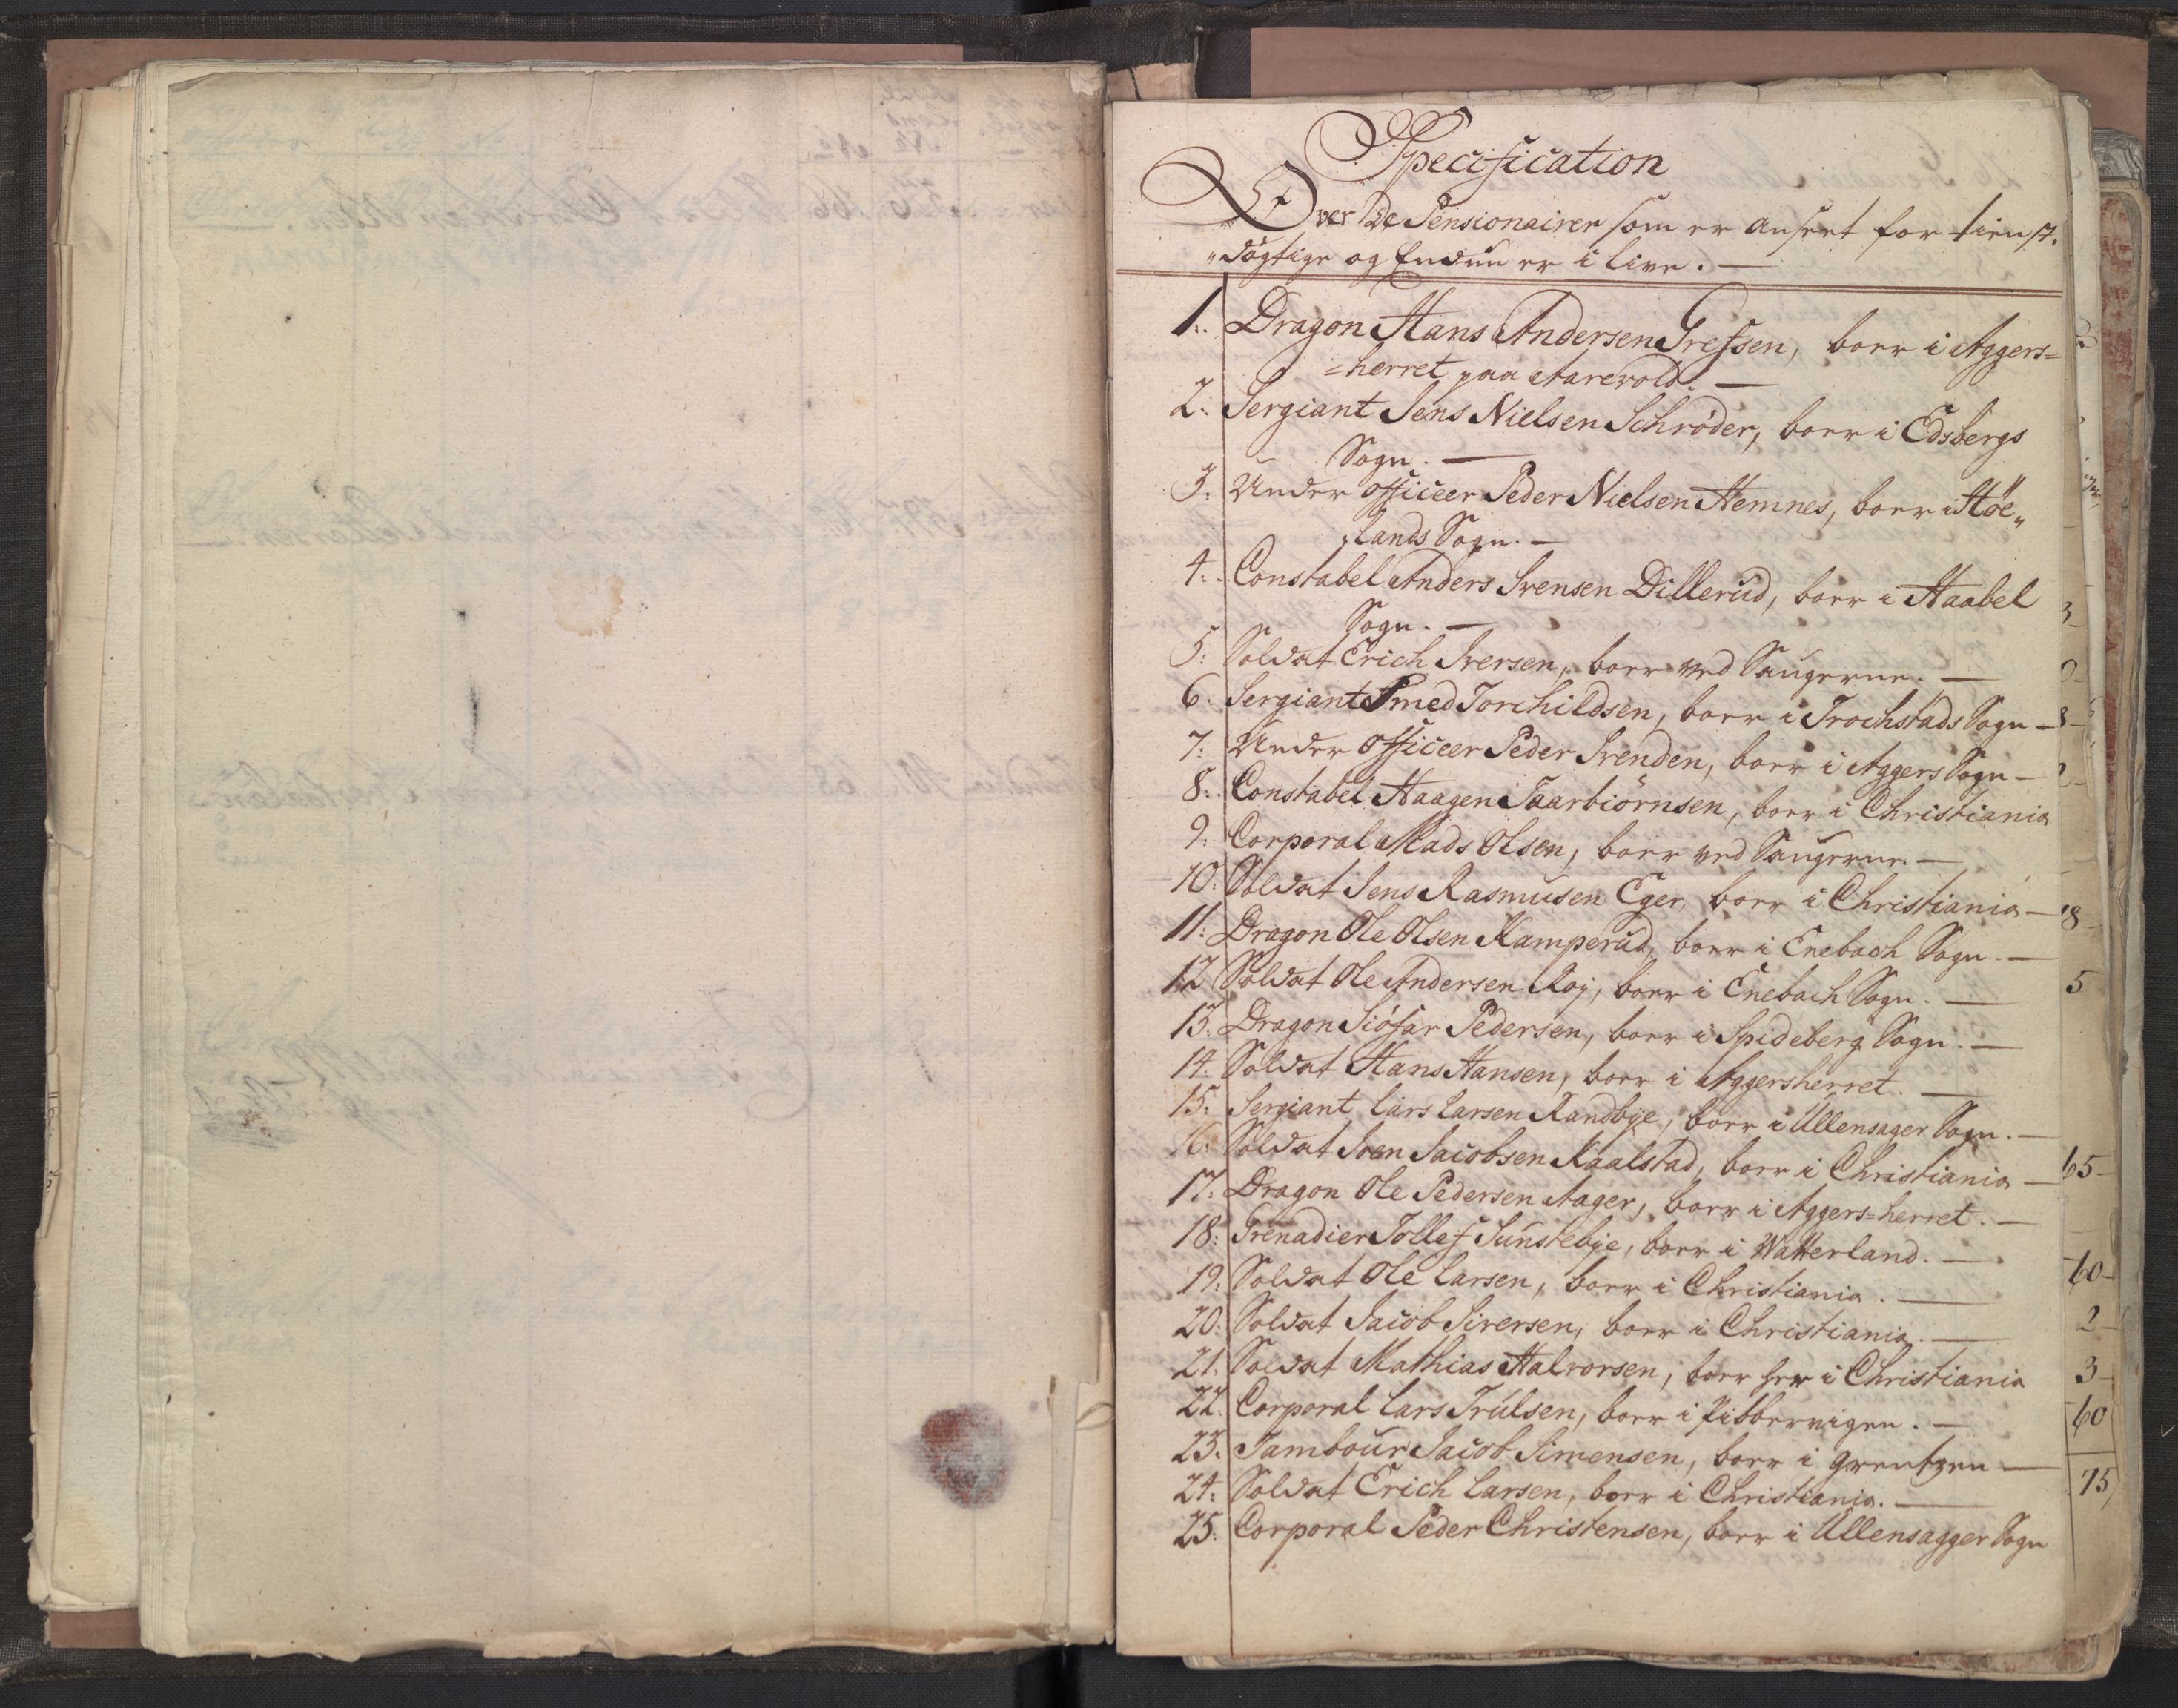 Specification
Over De Pensionairer som er anseet for tienst-
„dögtige og Endnu er i live. —
1. Dragon Hans Andersen Grefsen, boer i Aggers=
=herret paa Aarevold. —
2. Sergiant Jens Nielsen Schröder, boer i Edsbergs
Sogn. —
3. Under Officeer Peder Nielsen Hemnes, boer i Höe„
„lands Sogn. —
4. Constabel Anders Svensen Dillerud, boer i Haabel
Sogn. —
5. Soldat Erich Iversen, boer ved Saugerne. —
6. Sergiant Amed Torchildsen, boer i Trochstads Sogn —
7. Under Officeer Peder Svenden, boer i Aggers Sogn —
8. Constabel Haagen Taarbiörnsen, boer i Christiania
9. Corporal Mads Olsen, boer ved Saugerne —
10. Soldat Jens Rasmusen Eger, boer i Christiania —
11. Dragon Ole Olsen Kamperud, boer i Enebach Sogn. —
12 Soldat Ole Andersen Roj, boer i Enebach Sogn. —
13. Dragon Siöfar Pedersen, boer i Spideberg Sogn. —
14. Soldat Hans Hansen, boer i Aggersherret. —
15. Sergiant Lars Larsen Randbye, boer i Ullensager Sogn. —
16. Soldat Sven Jacobsen Kaalstad, boer i Christiania —
17. Dragon Ole Pedersen Aager, boer i Aggers=herret. —
18. Grenadier Tollef Sunstebye, boer i Watterland. —
19. Soldat Ole Larsen, boer i Christiania. —
20. Soldat Jacob Siversen, boer i Christiania. —
21. Soldat Mathias Halvorsen, boer her i Christiania
22. Corporal Lars Trulsen, boer i Pibbervigen. —
23. Tambour Jacob Simensen, boer i Grentzen —
24. Soldat Erich Larsen, boer i Christiania. —
25. Corporal Peder Christensen, boer i Ullensagger Sogn